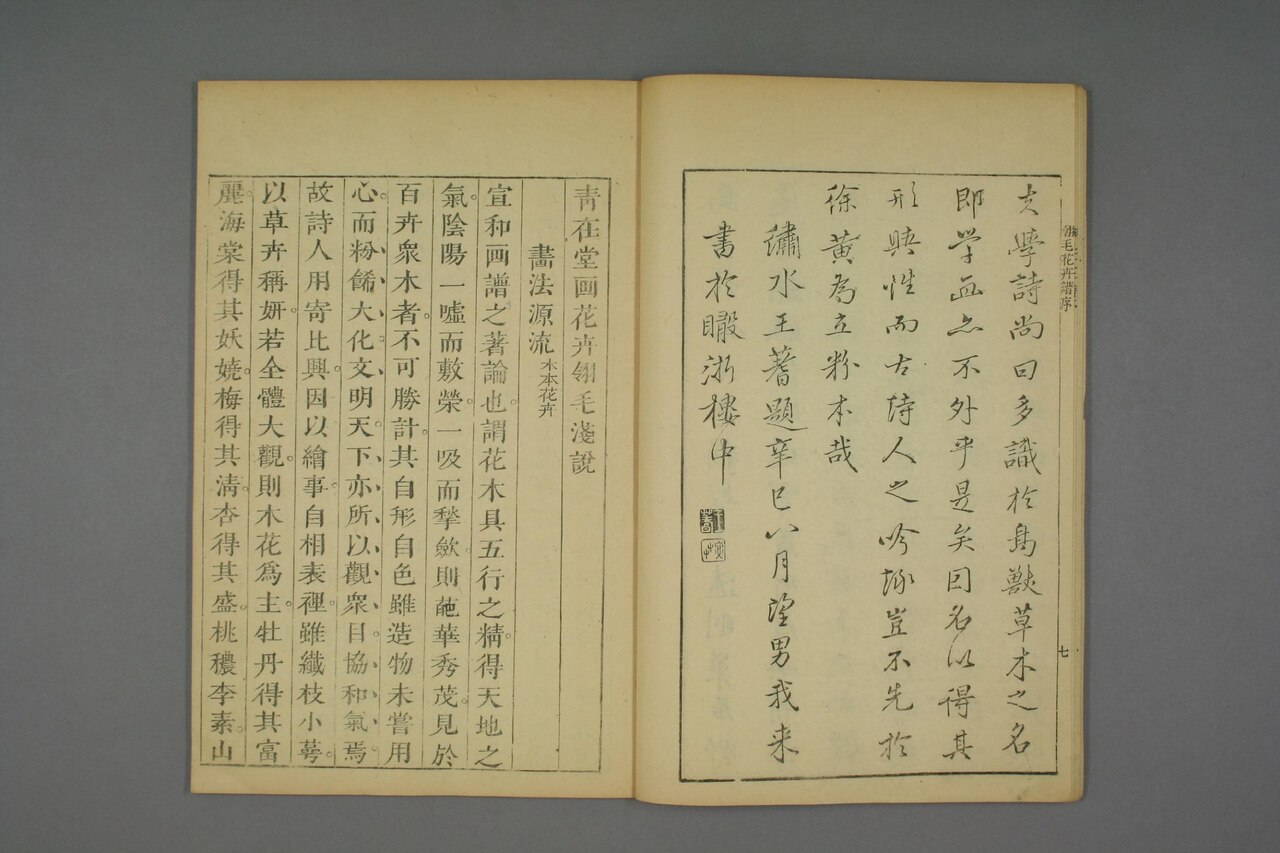 夫學詩尚曰多識於鳥獸草木之名
即学畫亦不外乎是矣因名以得其
形與性而古詩人之吟詠豈不先於
徐黃為立粉本哉
繡水王蓍題辛巳八月望男我来
書於瞰浙樓中
翎毛花卉譜序
七
青在堂画花卉翎毛淺說
畫法源流木本花卉
宣和画譜之著論也謂花木具五行之精得天地之
氣陰陽一噓而敷榮一吸而揫歛則葩華秀茂見於
百卉衆木者不可勝計其自形自色雖造物未嘗用
心而粉餙大化文明天下亦所以觀衆目協和氣焉
故詩人用寄比興因以繪事自相表裡雖纖枝小萼
以草卉稱妍若全體大觀則木花爲主牡丹得其富
麗海棠得其妖嬈梅得其清杏得其盛桃穠李素山